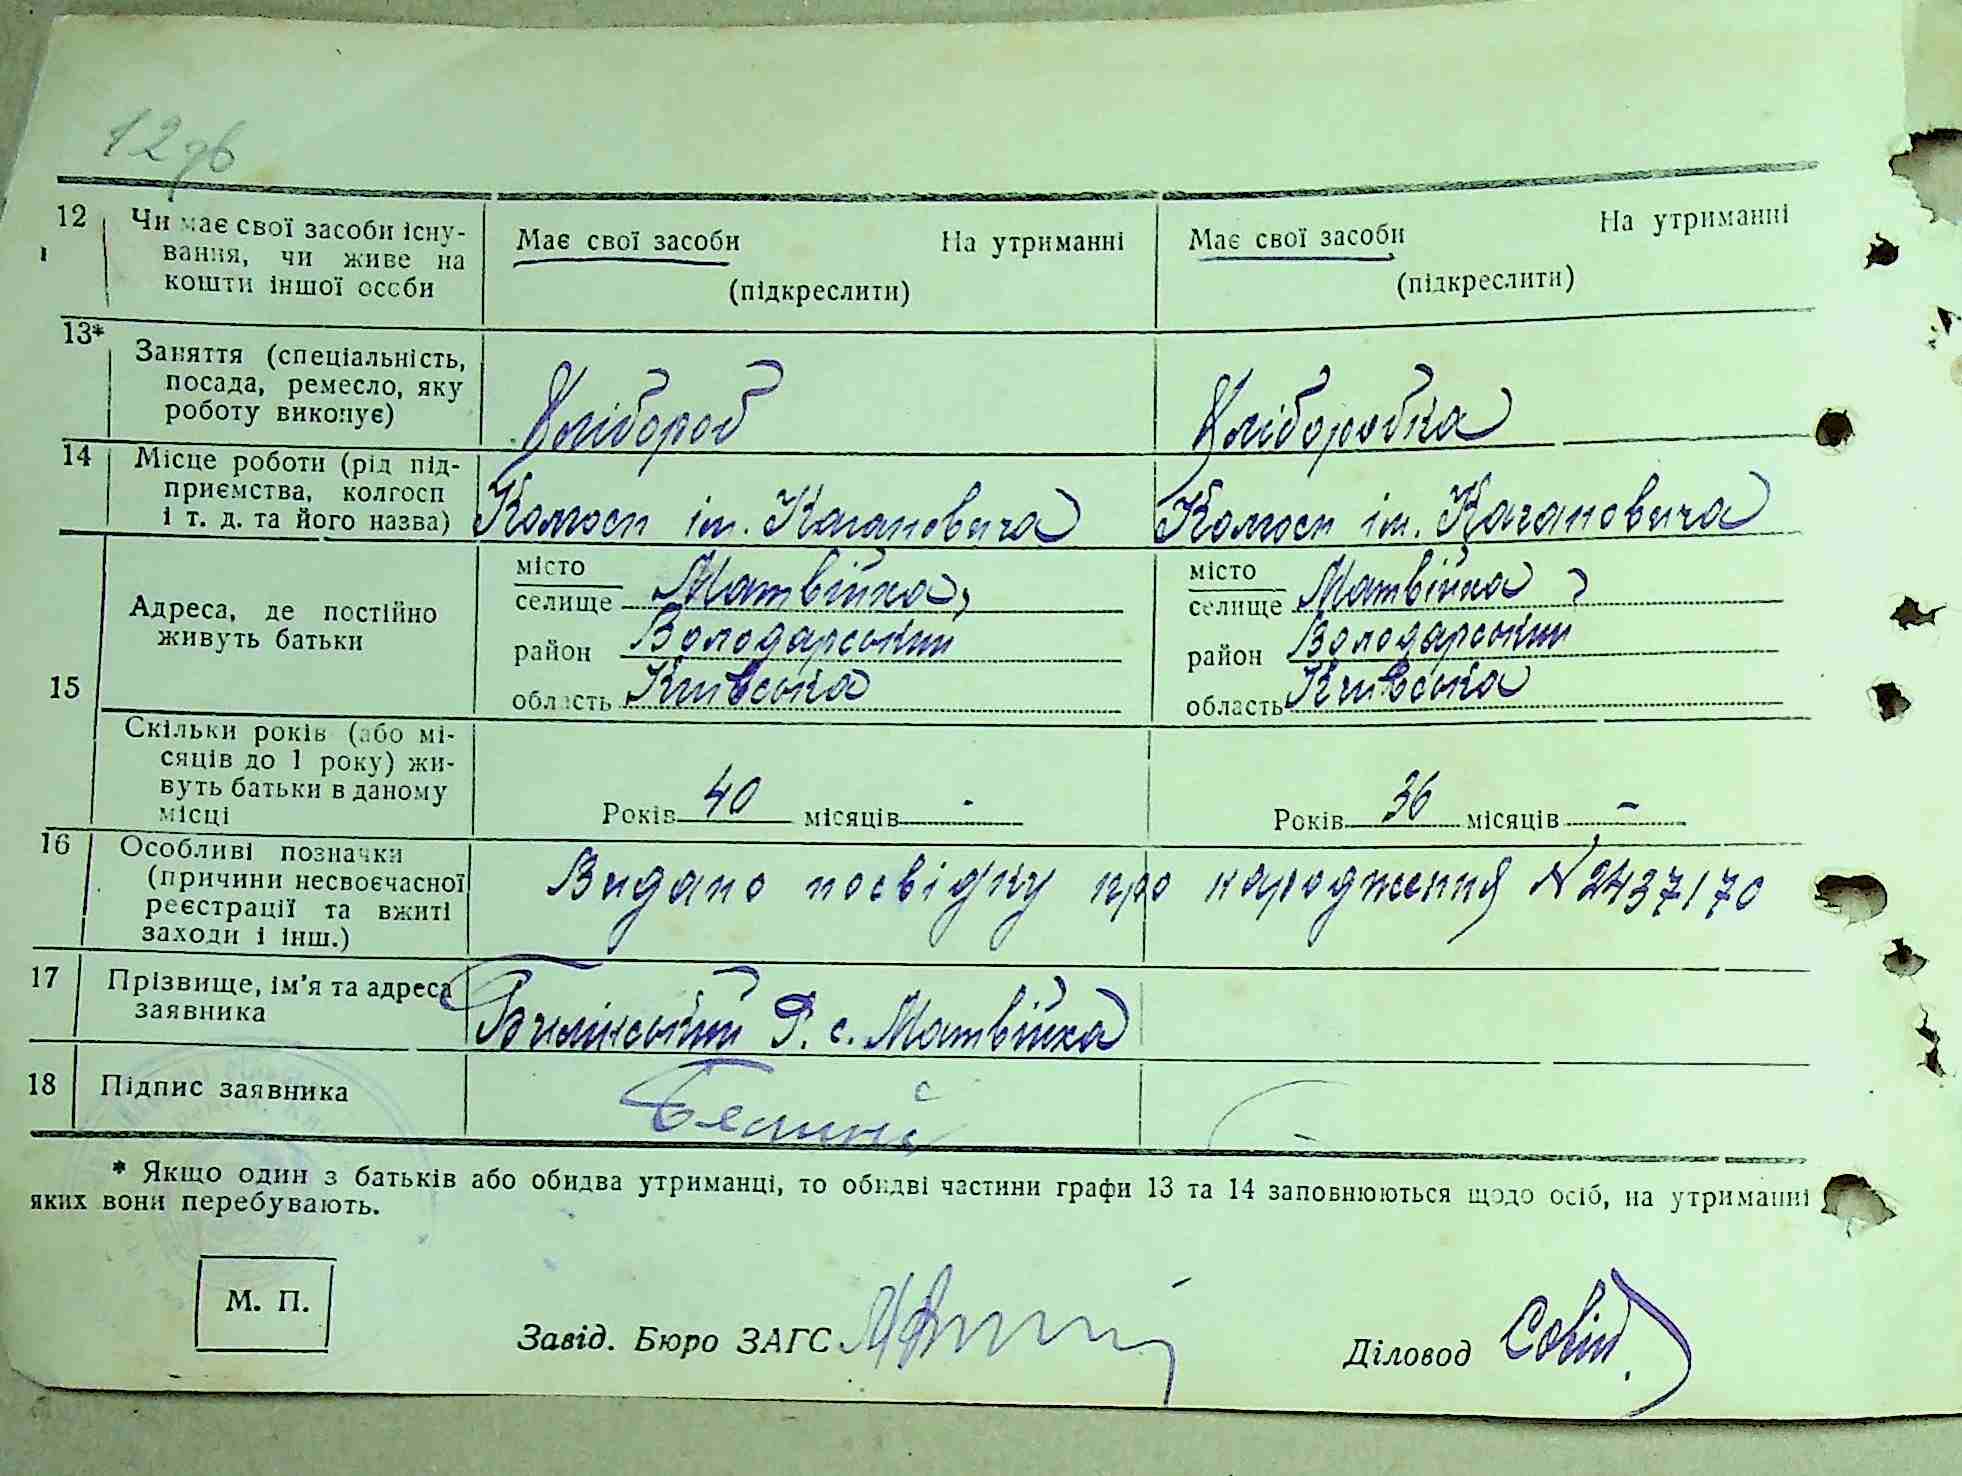 12 зв
12 Чи має свої засоби існу-
вання, чи живе на
кошти іншої особи
Має свої засоби На утриманні
(підкреслити)
Має свої засоби На утриманні
(підкреслити)
13* Заняття (спеціальність,
посада, ремесло, яку
роботу виконує)
Хлібороб
Хліборобка
14 Місце роботи (рід під-
приємства, колгосп
і т. д. та його назва)
Колгосп ім. Кагановича
Колгосп ім. Кагановича
15 Адреса, де постійно
живуть батьки
місто
селище Матвійка,
район Володарський
область Київська
місто
селище Матвійка,
район Володарський
область Київська
Скільки років (або мі-
сяців до 1 року) жи-
вуть батьки в даному
місці
Років 40 місяців -
Років 36 місяців -
16 Особливі позначки
(причини несвоєчасної
реєстрації та вжиті
заходи і інш.)
Видано посвідку про народження № 2437170
17 Прізвище, ім'я та адреса
заявника
Билінський Ф. с. Матвійка
18 Підпис заявника
* Якщо один з батьків або обидва утриманці, то обидві частини графи 13 та 14 заповнюються щодо осіб, на утриманні
яких вони перебувають.
М. П.
Завід. Бюро ЗАГС
Діловод